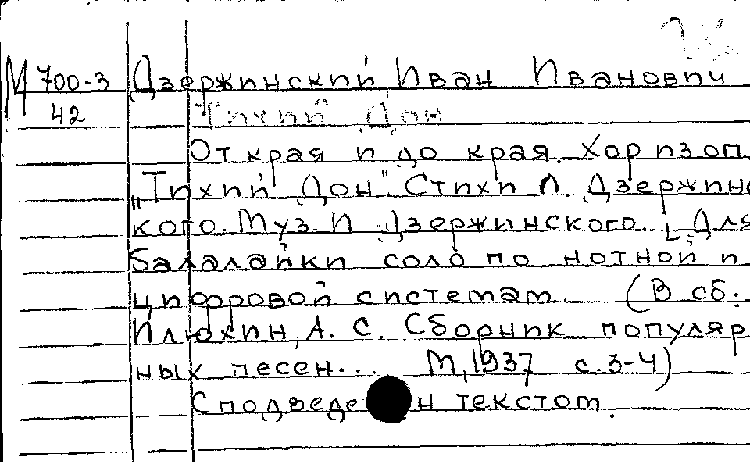 М 700-3 Дзержинский Иван Иванович
42 Тихий Дон
От края и до края. Хор из оп.
"Тихий Дон". Стихи Л. Дзержинс
кого. Муз. И. Дзержинского. [Для
балалайки соло по нотной и
цифровой системам. (В сб.
Илюхин, А. С. Сборник популяр
ных песен... М, 1937 с. 3-4)
С подведе н текстом.